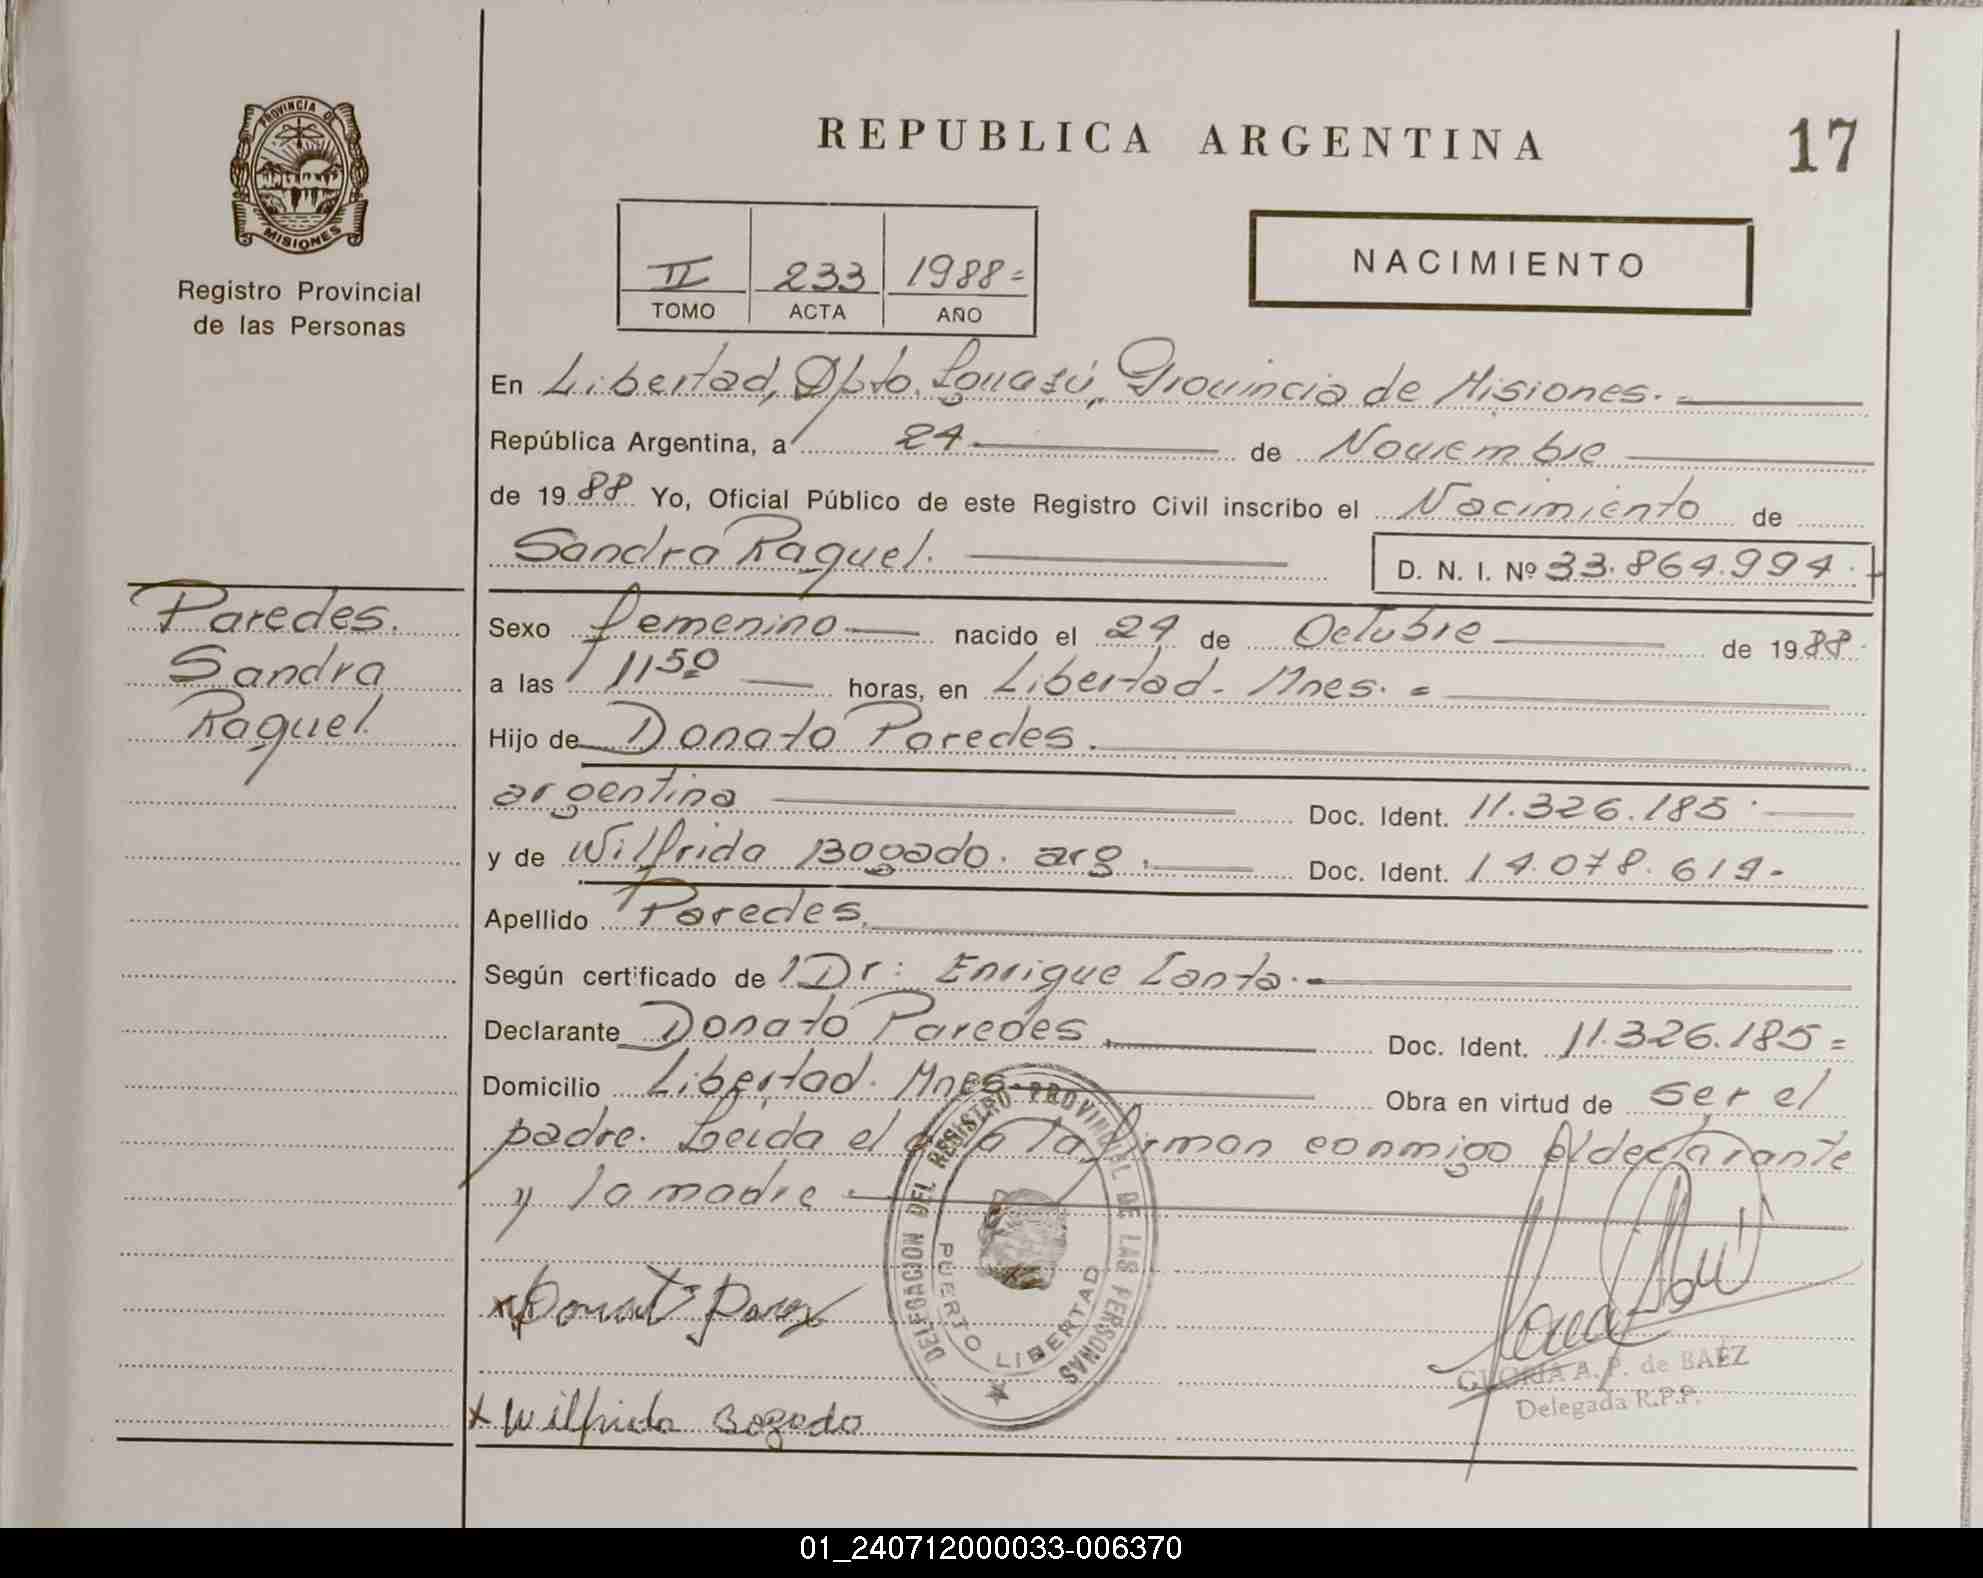 PROVINCIA DE
MISIONES
Registro Provincial
de las Personas
REPUBLICA ARGENTINA
17
II 233 1988=
TOMO ACTA AÑO
NACIMIENTO
En Libertad, Dpto. Iguazú, Provincia de Misiones.
República Argentina, a 24 de Noviembre
de 1988 Yo, Oficial Público de este Registro Civil inscribo el Nacimiento de
Sandra Raquel.
D. N. I. Nº 33.864.994.
Paredes.
Sandra
Raquel.
Sexo femenino nacido el 24 de Octubre de 1988.
a las 11 50 horas, en Libertad. Mnes. =
Hijo de Donato Paredes.
argentina Doc. Ident. 11.326.185
y de Wilfrida Bogado. arg. Doc. Ident. 14.078.619.
Apellido Paredes.
Según certificado de Dr: Enrique
Declarante Donato Paredes, Doc. Ident. 11.326.185=
Domicilio Libertad. Mnes. Obra en virtud de ser el
padre. Leida el acta la firman conmigo el declarante
y la madre.
DELEGACION DEL REGISTRO PROVINCIAL DE LAS PERSONAS
PUERTO LIBERTAD
x Donato
x Wilfrida Bogado
GLORIA A. P. de BAEZ
Delegada R.P.P.
01_240712000033-006370